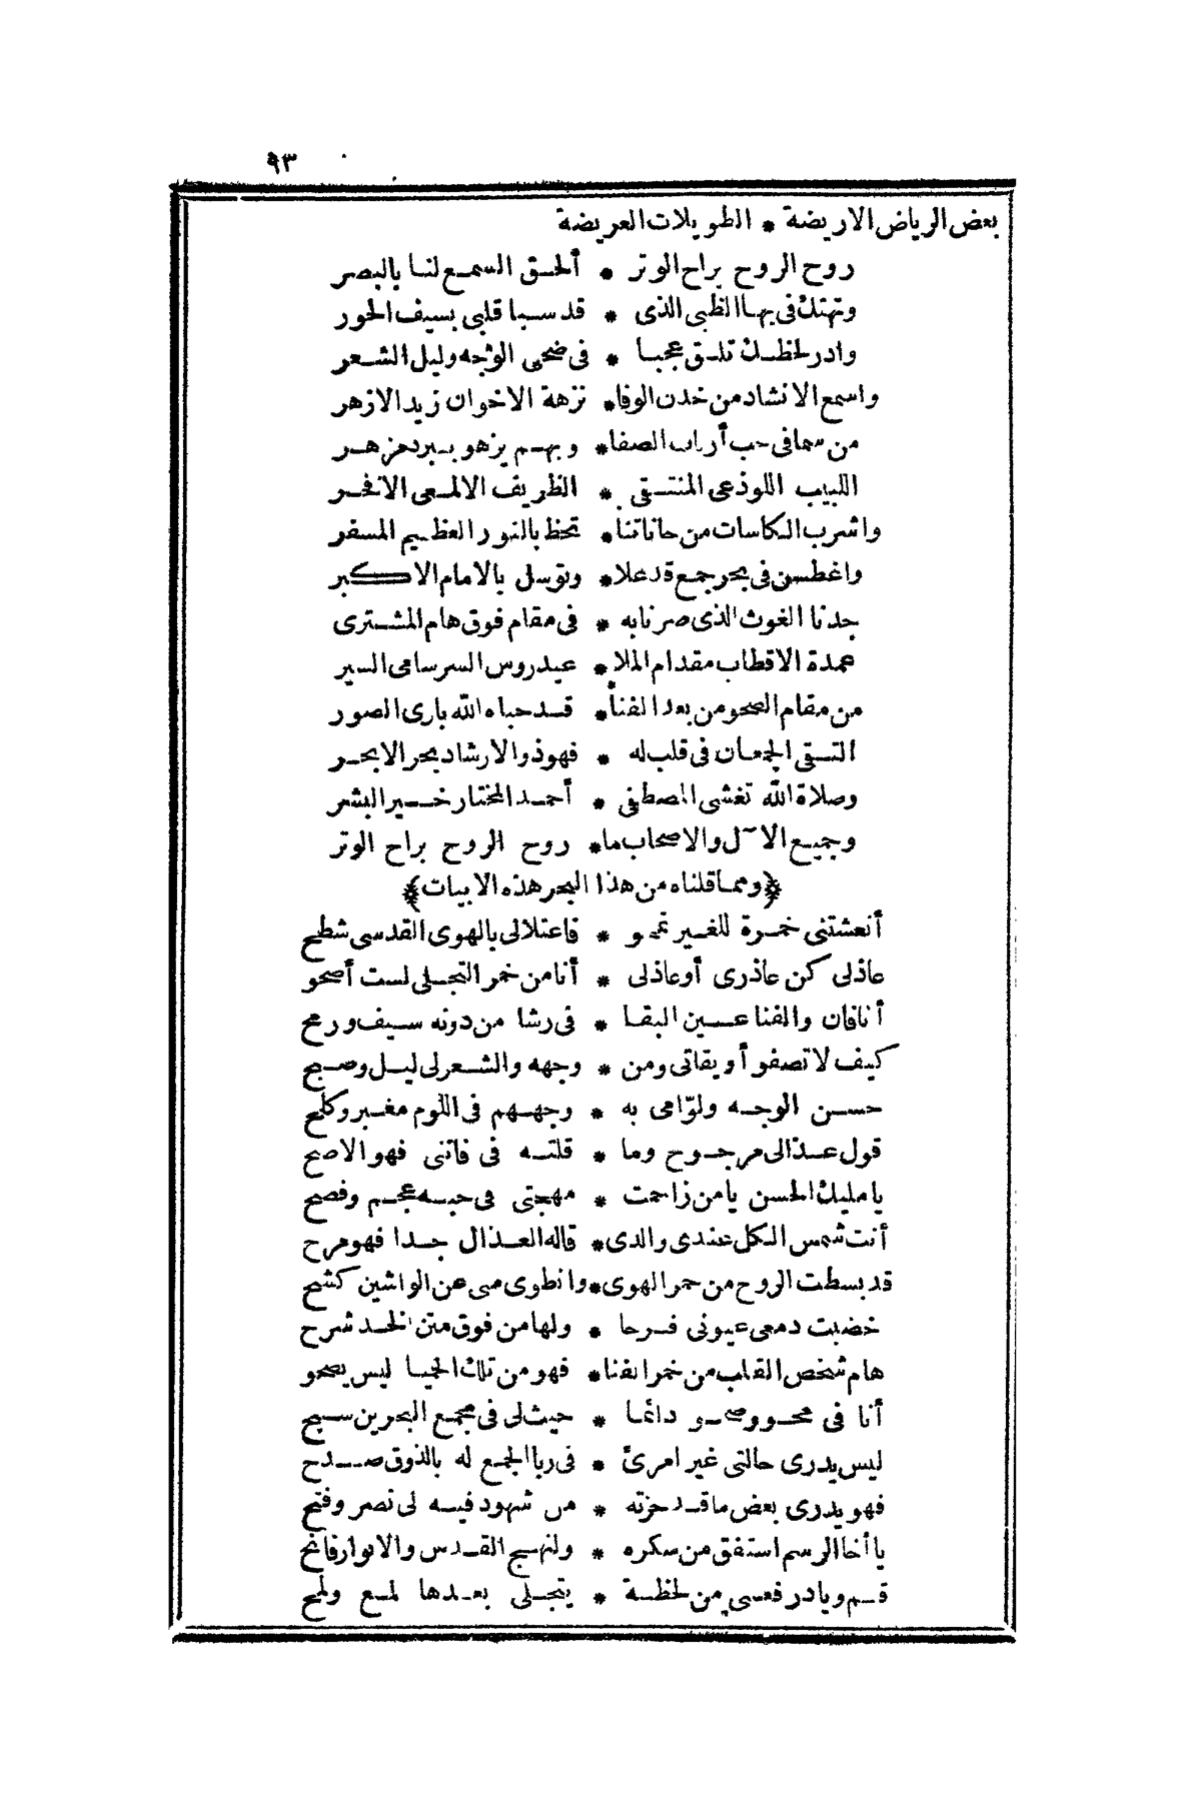 ٩٣
بعض الرياض الاريضة * الطويلات العريضة
روح الروح براح الوتر * ألحق السمع لنا بالبصر
وتهتك فى بها الظبى الذى * قد سبا قلبى بسيف الحور
وادر لحظك تلق عجبا * فى ضحى الوجه وليل الشعر
واسمع الانشاد من خدن الوفا * نزهة الاخوان زيد الازهر
من سما فى حب أرباب الصفا * وبهم يزهو ببرد
اللبيب اللوذعى المنتقى * الظريف الالمعى الافخر
واشرب الكاسات من حاناتنا * تحظ بالنور العظيم المسفر
واغطسن فى بحر جمع قد علا * وتوسل بالامام الاكبر
جدنا الغوث الذى صرنا به * فى مقام فوق هام المشترى
عمدة الاقطاب مقدام الملا * عيدروس السر سامى السير
من مقام الصحو من بعد الفنا * قد حباه الله بارى الصور
التقى الجمعان فى قلب له * فهو ذو الارشاد بحر الابحر
وصلاة الله تغشى المصطفى * أحمد المختار خير البشر
وجميع الآل والاصحاب ما * روح الروح براح الوتر
﴿ومما قلناه من هذا البحر هذه الابيات﴾
أنعشتنى خمرة للغير تمحو * فاعتلالى بالهوى القدسى شطح
عاذلى كن عاذرى أو عاذلى * أنا من خمر التجلى لست أصحو
أنا فان والفنا عين البقا * فى رشا من دونه سيف ورمح
كيف لا تصفو أويقاتى ومن * وجهه والشعر لى ليل وصبح
حسن الوجه ولوّامى به * وجههم فى اللوم مغبر وكلح
قول عذالى مرجوح وما * قلته فى فاتنى فهو الاصح
يا مليك الحسن يا من زاحمت * مهجتى فى حبه عجم وفصح
أنت شمس الكل عندى والذى * قاله العذال جدا فهو مرح
قد بسطت الروح من خمر الهوى * وانطوى منى عن الواشين كشح
خضبت دمعى عيونى فرحا * ولها من فوق متن الخد شرح
هام شخص القلب من خمر الفنا * فهو من تلك الحميا ليس يصحو
أنا فى محو وصحو دائما * حيث لى فى مجمع البحرين سبح
ليس يدرى حالتى غير امرئ * فى ربا الجمع له بالذوق صدح
فهو يدرى بعض ما قد حزته * من شهود فيه لى نصر وفتح
يا أخا الرسم استفق من سكره * ولنهج القدس والانوار فانح
قم وبادر فعسى من لحظة * يتجلى بعدها لمع ولمح